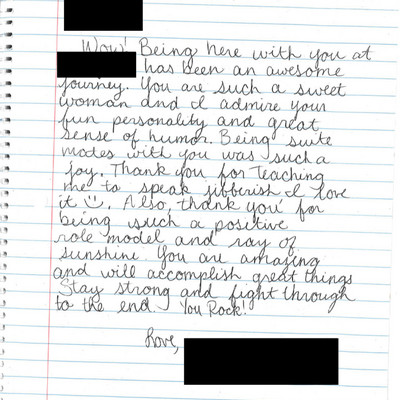 Wow! Being here with you at
has been an awesome
journey. You are such a sweet
woman and I admire your
fun personality and great
sense of humor. Being suite
mates with you was such a
joy. Thank you for teaching
me to speak jibberish I love
it ☺. Also, thank you for
being such a positive
role model and ray of
sunshine. You are amazing
and will accomplish great things
Stay strong and fight through
to the end. You Rock!
Love,